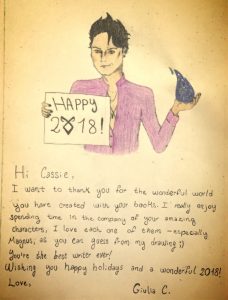 HAPPY
2018!
Hi Cassie,
I want to thank you for the wonderful world
you have created with your books. I really enjoy
spending time in the company of your amazing
characters, I love each one of them - especially
Magnus, as you can guess from my drawing ;)
You're the best writer ever!
Wishing you happy holidays and a wonderful 2018!
Love,
Giulia C.